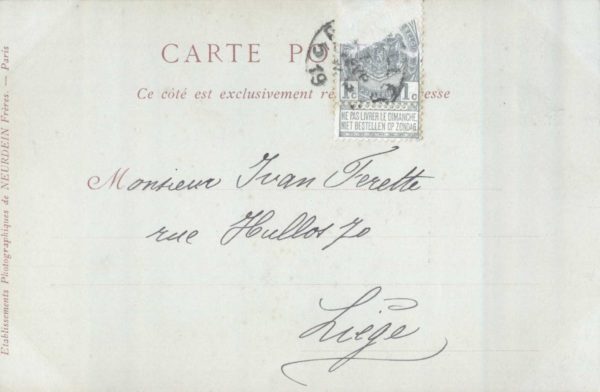 CARTE PO
Ce côté est exclusivement ré esse
1c 1c
NE PAS LIVRER LE DIMANCHE
NIET BESTELLEN OP ZONDAG
Monsieur Ivan Ferette
rue Hullos 70
Liége
Etablissements Photographiques de NEURDEIN Frères. — Paris